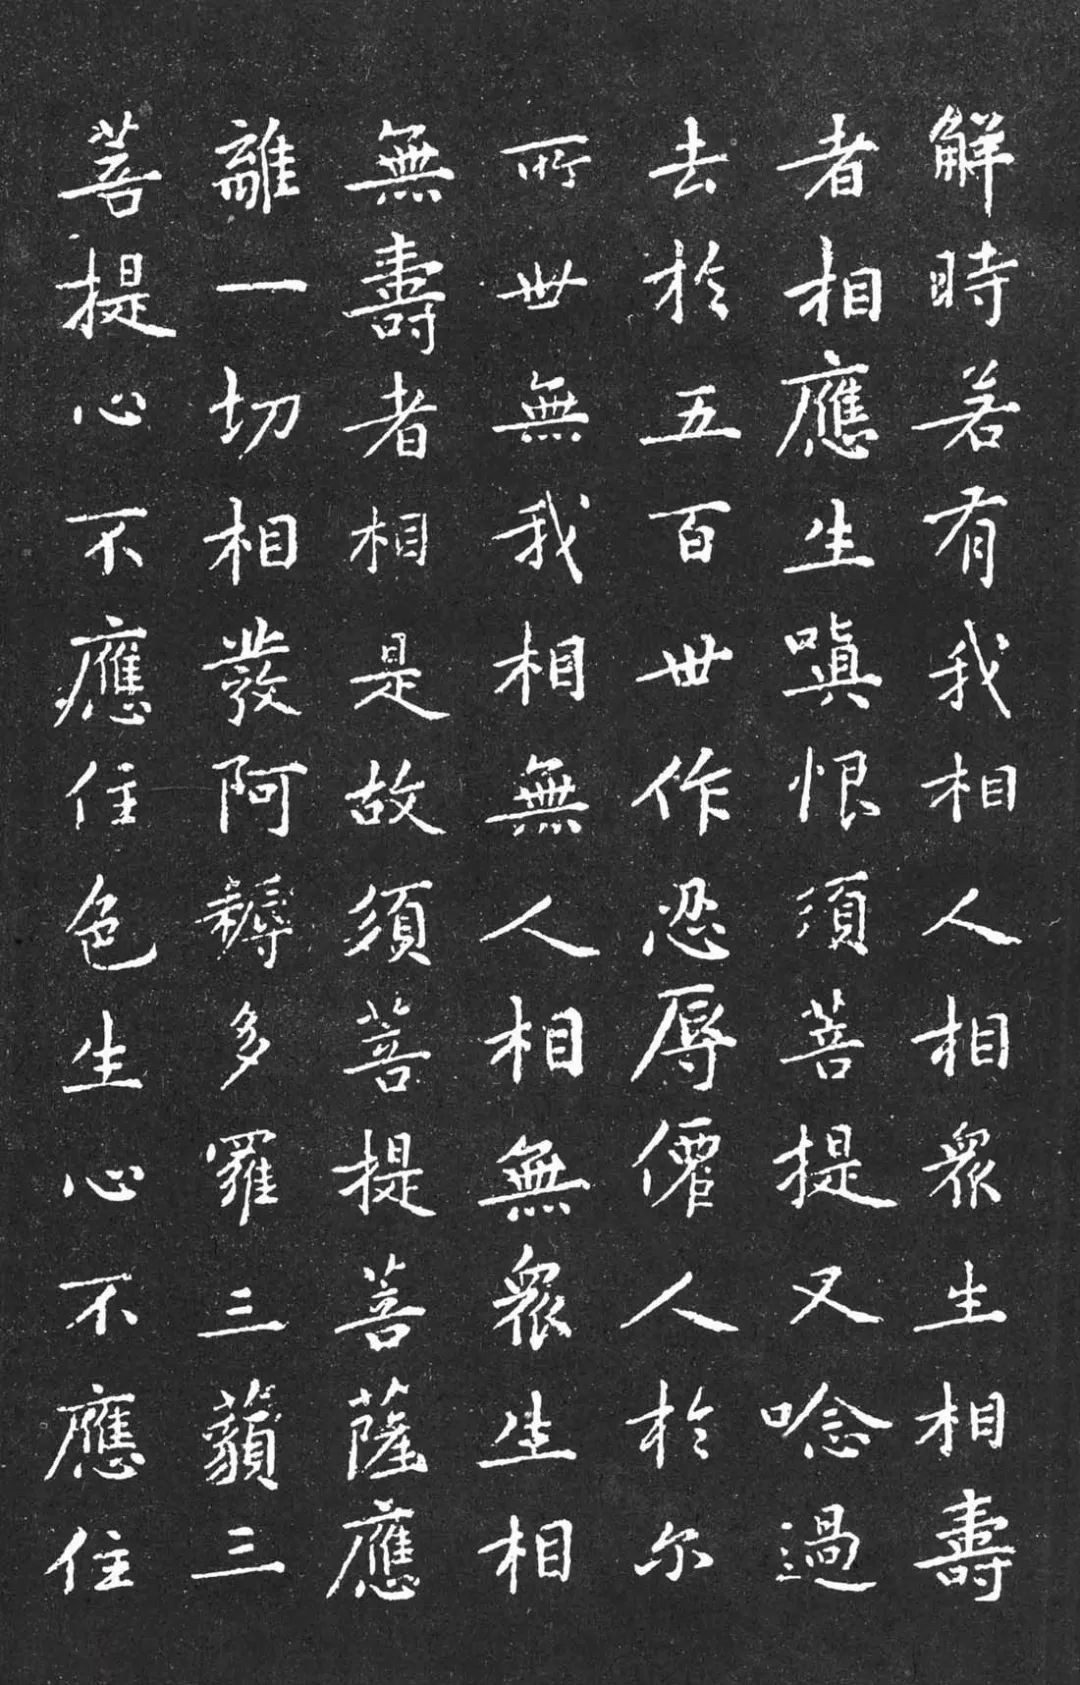 解時若有我相人相眾生相壽
者相應生嗔恨須菩提又唸過
去於五百世作忍辱僊人於尔
所世無我相無人相無眾生相
無壽者相是故須菩提菩薩應
離一切相發阿耨多羅三藐三
菩提心不應住色生心不應住